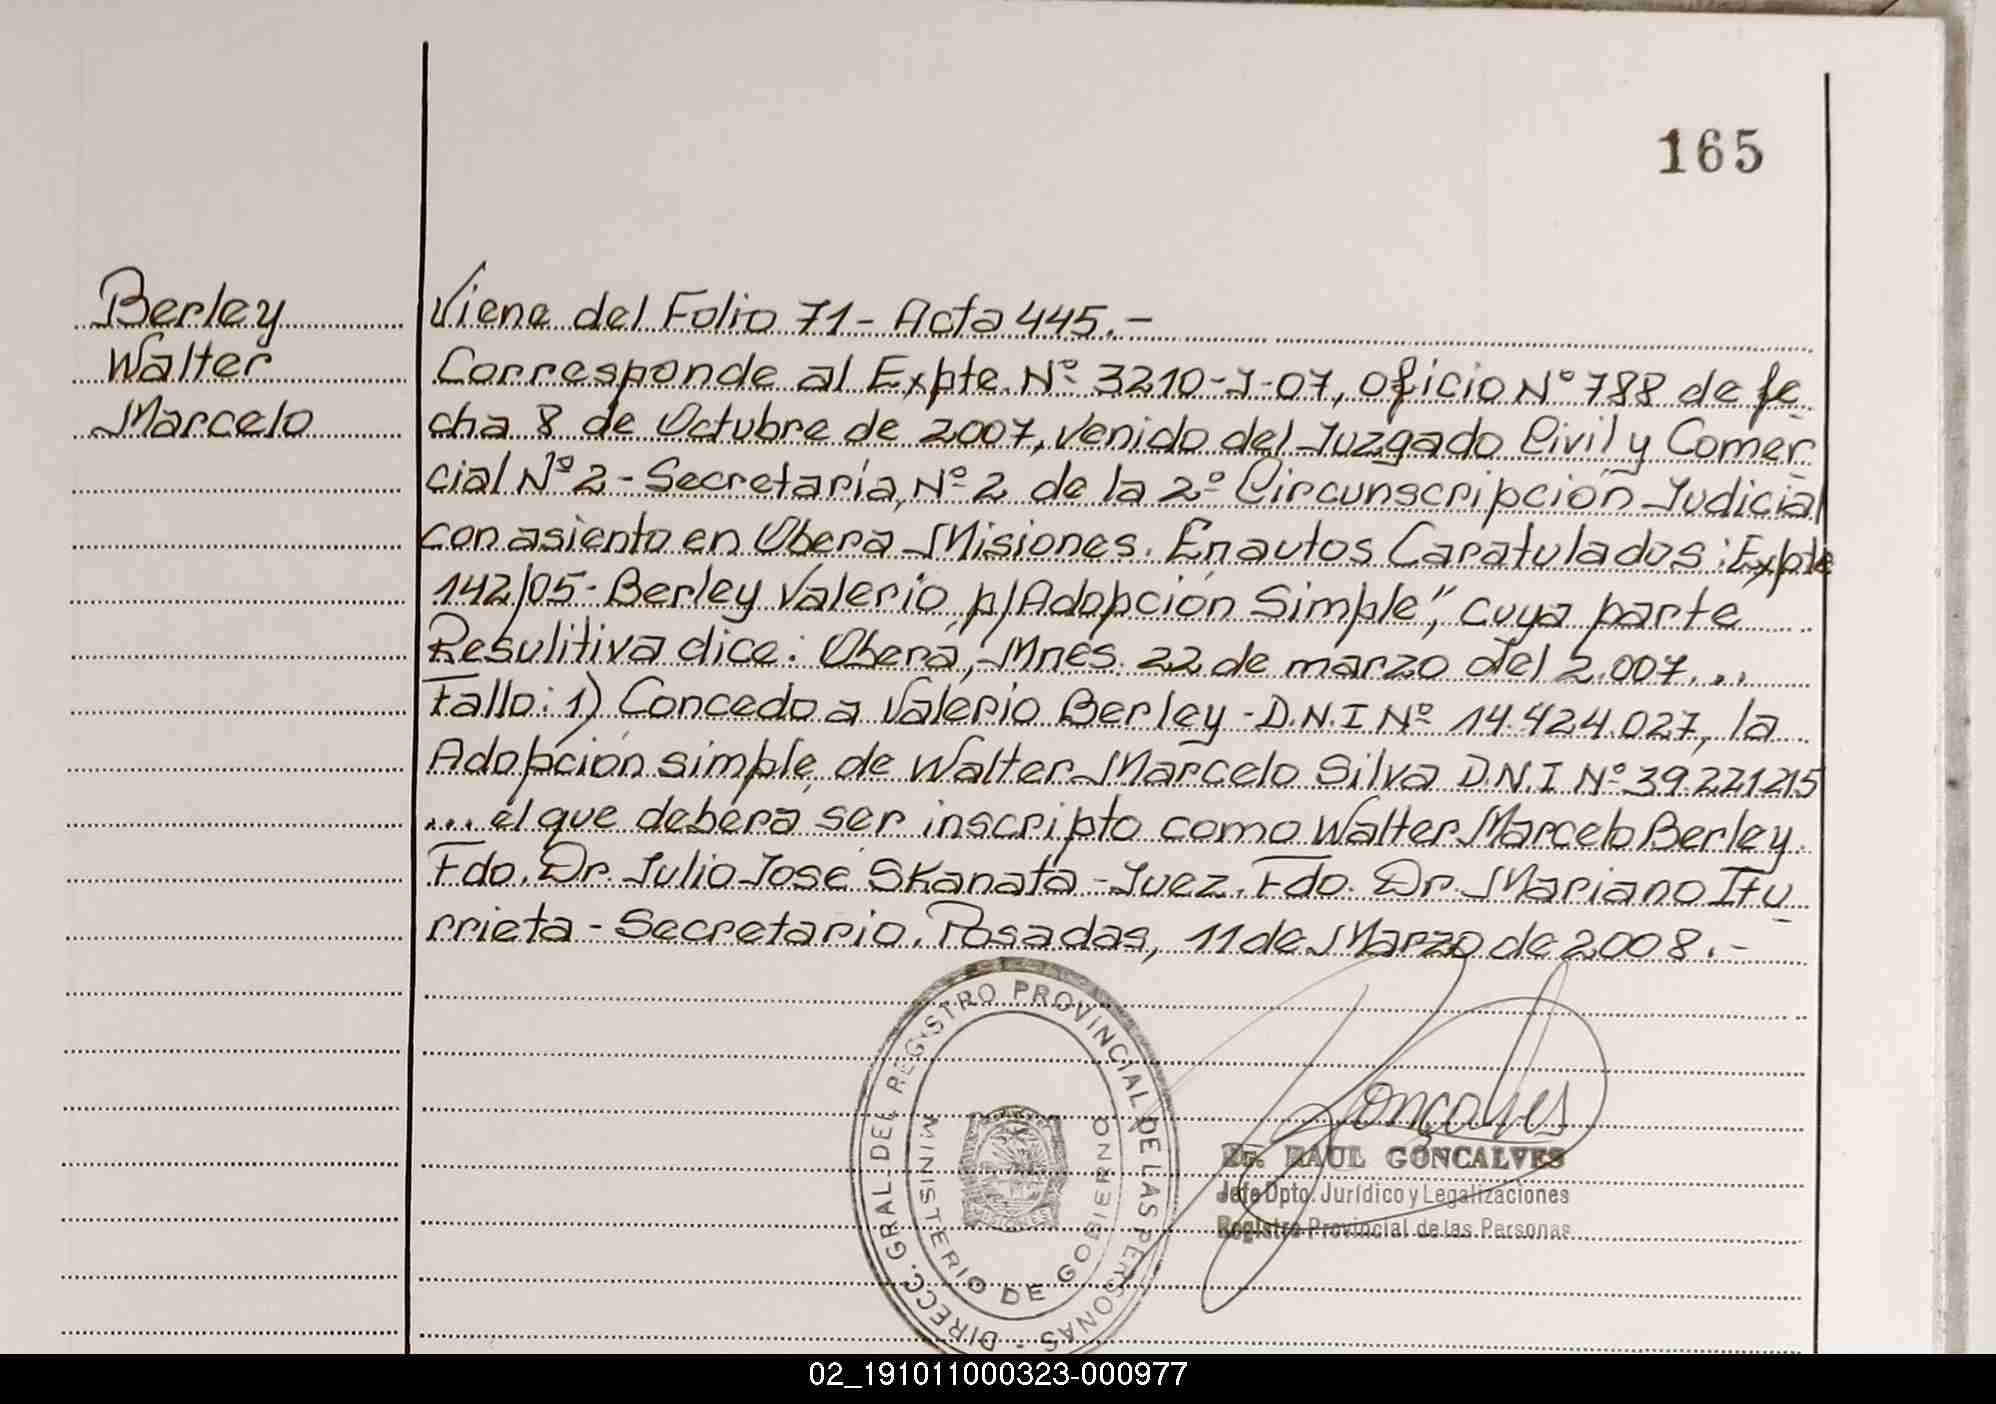 165
Berley
Walter
Marcelo
Viene del Folio 71 - Acta 445.-
Corresponde al Expte. Nº 3210-J-07, Oficio Nº 788 de fe
cha 8 de Octubre de 2007, venido del Juzgado Civil y Comer
cial Nº 2 - Secretaría Nº 2 de la 2º Circunscripción Judicial
con asiento en Obera Misiones. En autos Caratulados: Expte
142/05 - Berley Valerio p/Adopción Simple", cuya parte
Resulitiva dice: Oberá, Mnes. 22 de marzo del 2.007...
Fallo: 1) Concedo a Valerio Berley - D.N.I Nº 14.424.027, la
Adopción simple, de Walter Marcelo Silva D.N.I Nº 39.221.215
... el que deberá ser inscripto como Walter Marcelo Berley.
Fdo. Dr. Julio José Skanata - Juez. Fdo. Dr. Mariano Itu
rrieta - Secretario. Posadas, 11 de Marzo de 2008.-
DIRECC. GRAL. DEL REGISTRO PROVINCIAL DE LAS PERSONAS
MINISTERIO DE GOBIERNO
Gonçalves
Dr. RAUL GONCALVES
Jefe Dpto. Jurídico y Legalizaciones
Registro Provincial de las Personas
02_191011000323-000977